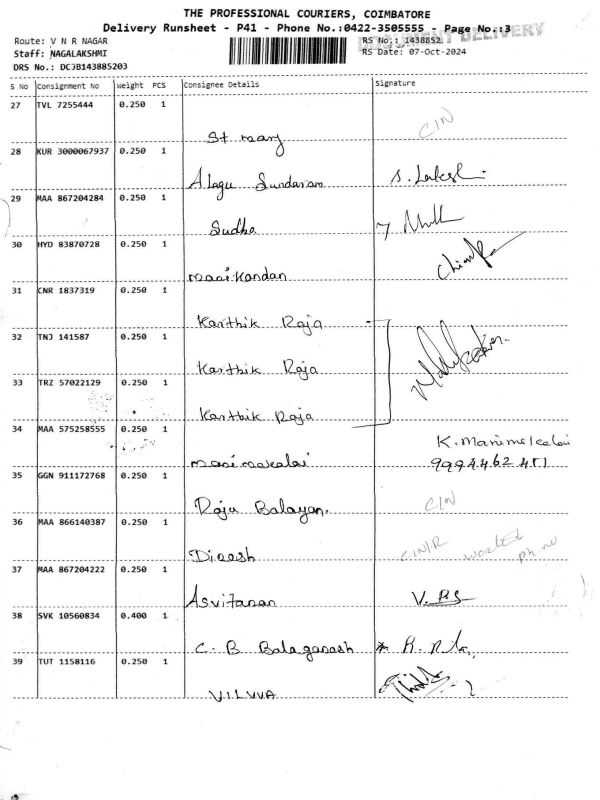 THE PROFESSIONAL COURIERS, COIMBATORE
Delivery Runsheet - P41 - Phone No.:0422-3505555 - Page No.:3
DOCUMENT DELIVERY
Route: V N R NAGAR RS No.: 1438852
Staff: NAGALAKSHMI RS Date: 07-Oct-2024
DRS No.: DCJB143885203
S No Consignment No Weight PCS Consignee Details Signature
27 TVL 7255444 0.250 1
St mary C/N
28 KUR 3000067937 0.250 1
Alagu Sundaram S. Lakshi
29 MAA 867204284 0.250 1
Sudha
30 HYD 83870728 0.250 1
manikandan
31 CNR 1837319 0.250 1
Karthik Raja
32 TNJ 141587 0.250 1
Karthik Raja
33 TRZ 57022129 0.250 1
Karthik Raja
34 MAA 575258555 0.250 1
manimekalai K. Manimekalai
9994462 481
35 GGN 911172768 0.250 1
Raju Balayan. C/N
36 MAA 866140387 0.250 1
Dinesh C/N/R wanted ph no
37 MAA 867204222 0.250 1
Asvitaran V. BS
38 SVK 10560834 0.400 1
C. B Balaganash
39 TUT 1158116 0.250 1
VILVVA